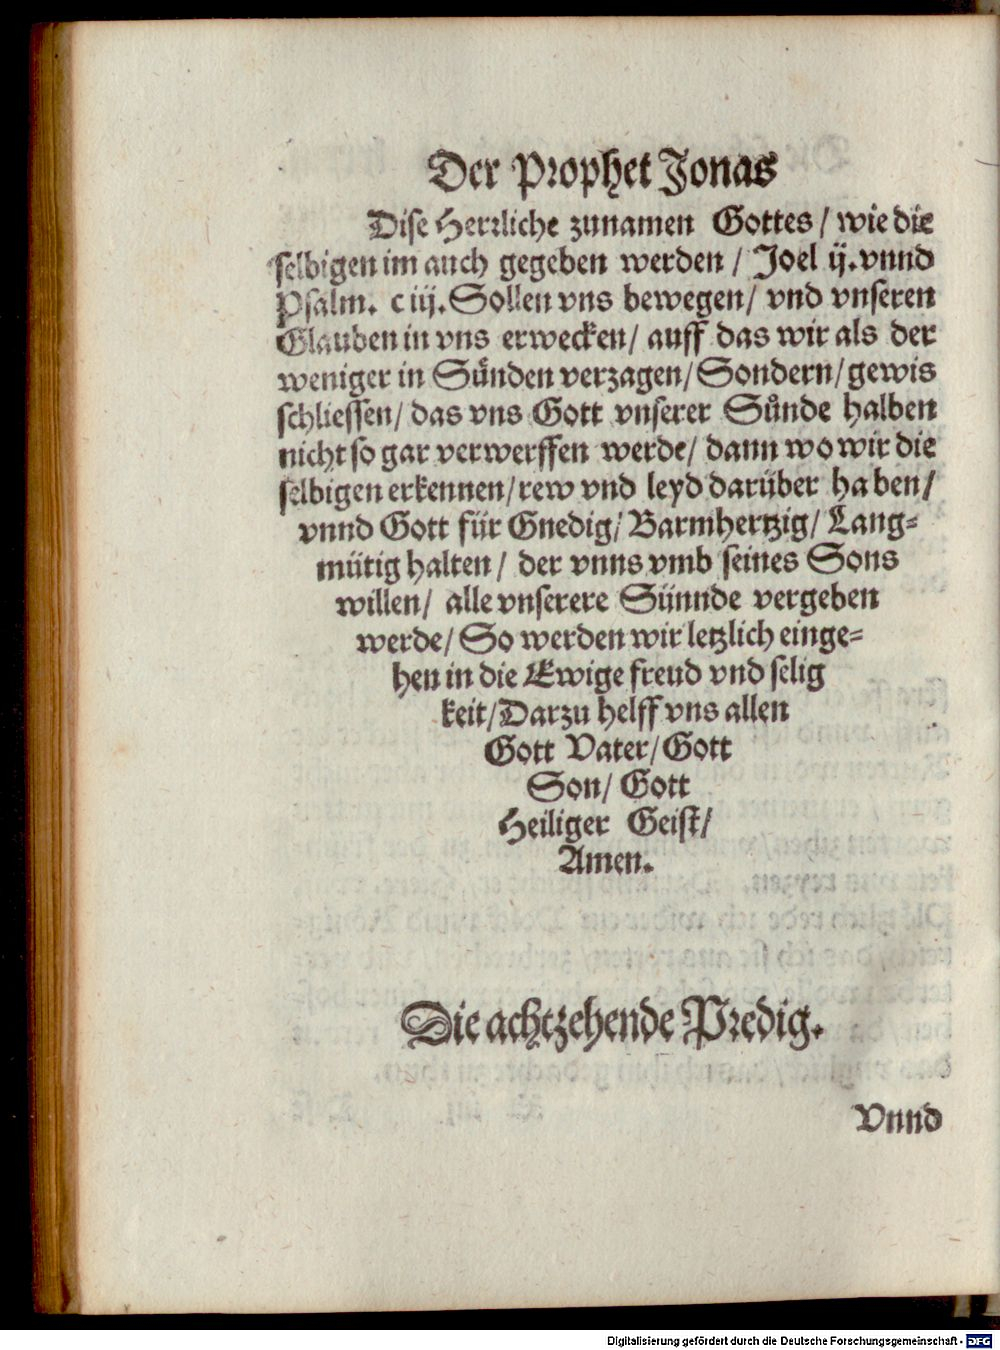 Der Prophet Jonas
Dise Herrliche zunamen Gottes / wie die
selbigen im auch gegeben werden / Joel ij. vnnd
Psalm. ciij. Sollen vns bewegen / vnd vnseren
Glauben in vns erwecken / auff das wir als der
weniger in Sünden verzagen / Sondern / gewis
schliessen / das vns Gott vnserer Sünde halben
nicht so gar verwerffen werde / dann wo wir die
selbigen erkennen / rew vnd leyd darüber haben /
vnnd Gott für Gnedig / Barmhertzig / Lang=
mütig halten / der vnns vmb seines Sons
willen / alle vnserere Sünnde vergeben
werde / So werden wir letzlich einge=
hen in die Ewige freud vnd selig
keit / Darzu helff vns allen
Gott Vater / Gott
Son / Gott
Heiliger Geist /
Amen.
Die achtzehende Predig.
Vnnd
Digitalisierung gefördert durch die Deutsche Forschungsgemeinschaft - DFG